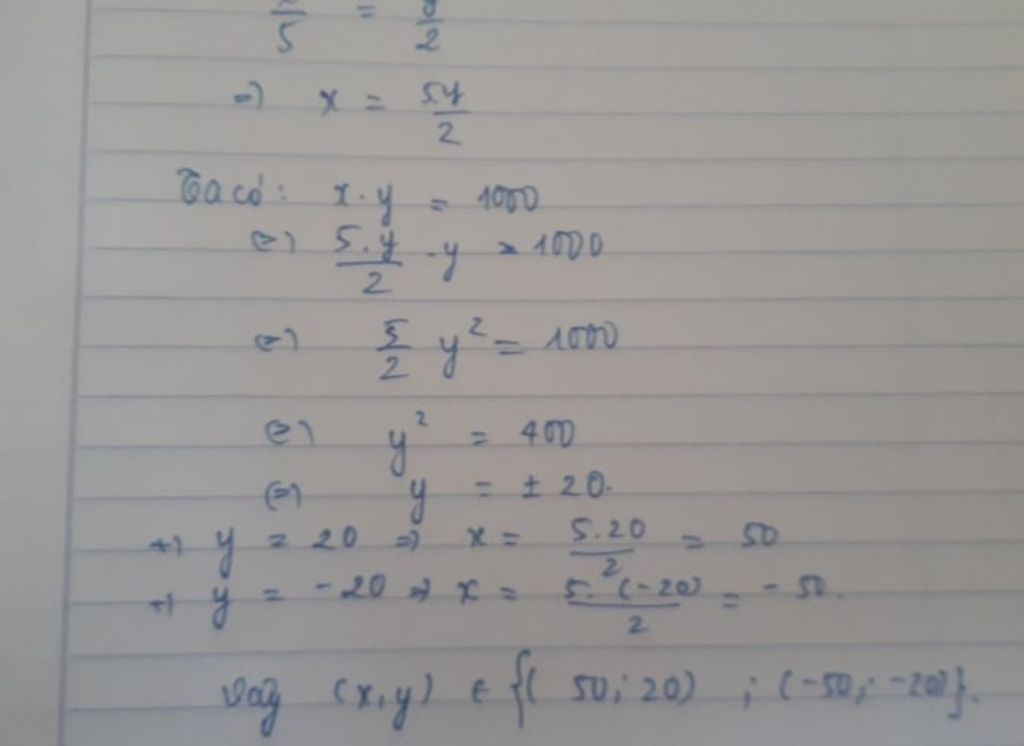 x/5 = y/2
=) x = 5y/2
Ta có: x.y = 1000
(=) 5.y/2 .y = 1000
(=) 5/2 y² = 1000
(=) y² = 400
(=) y = ± 20.
+) y = 20 =) x = 5.20/2 = 50
+) y = -20 =) x = 5.(-20)/2 = -50.
Vậy (x,y) ∈ {( 50; 20) ; (-50; -20)}.